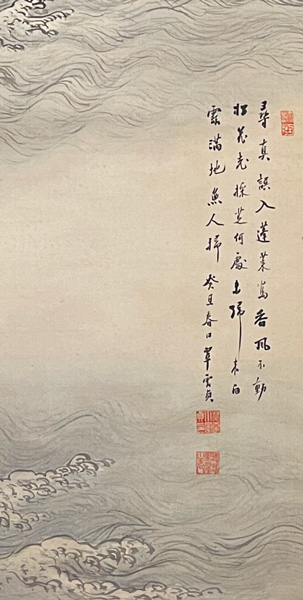 尋真誤入蓬萊島香風不動
松花老採芝何處未歸来白
雲滿地無人掃 癸丑春日